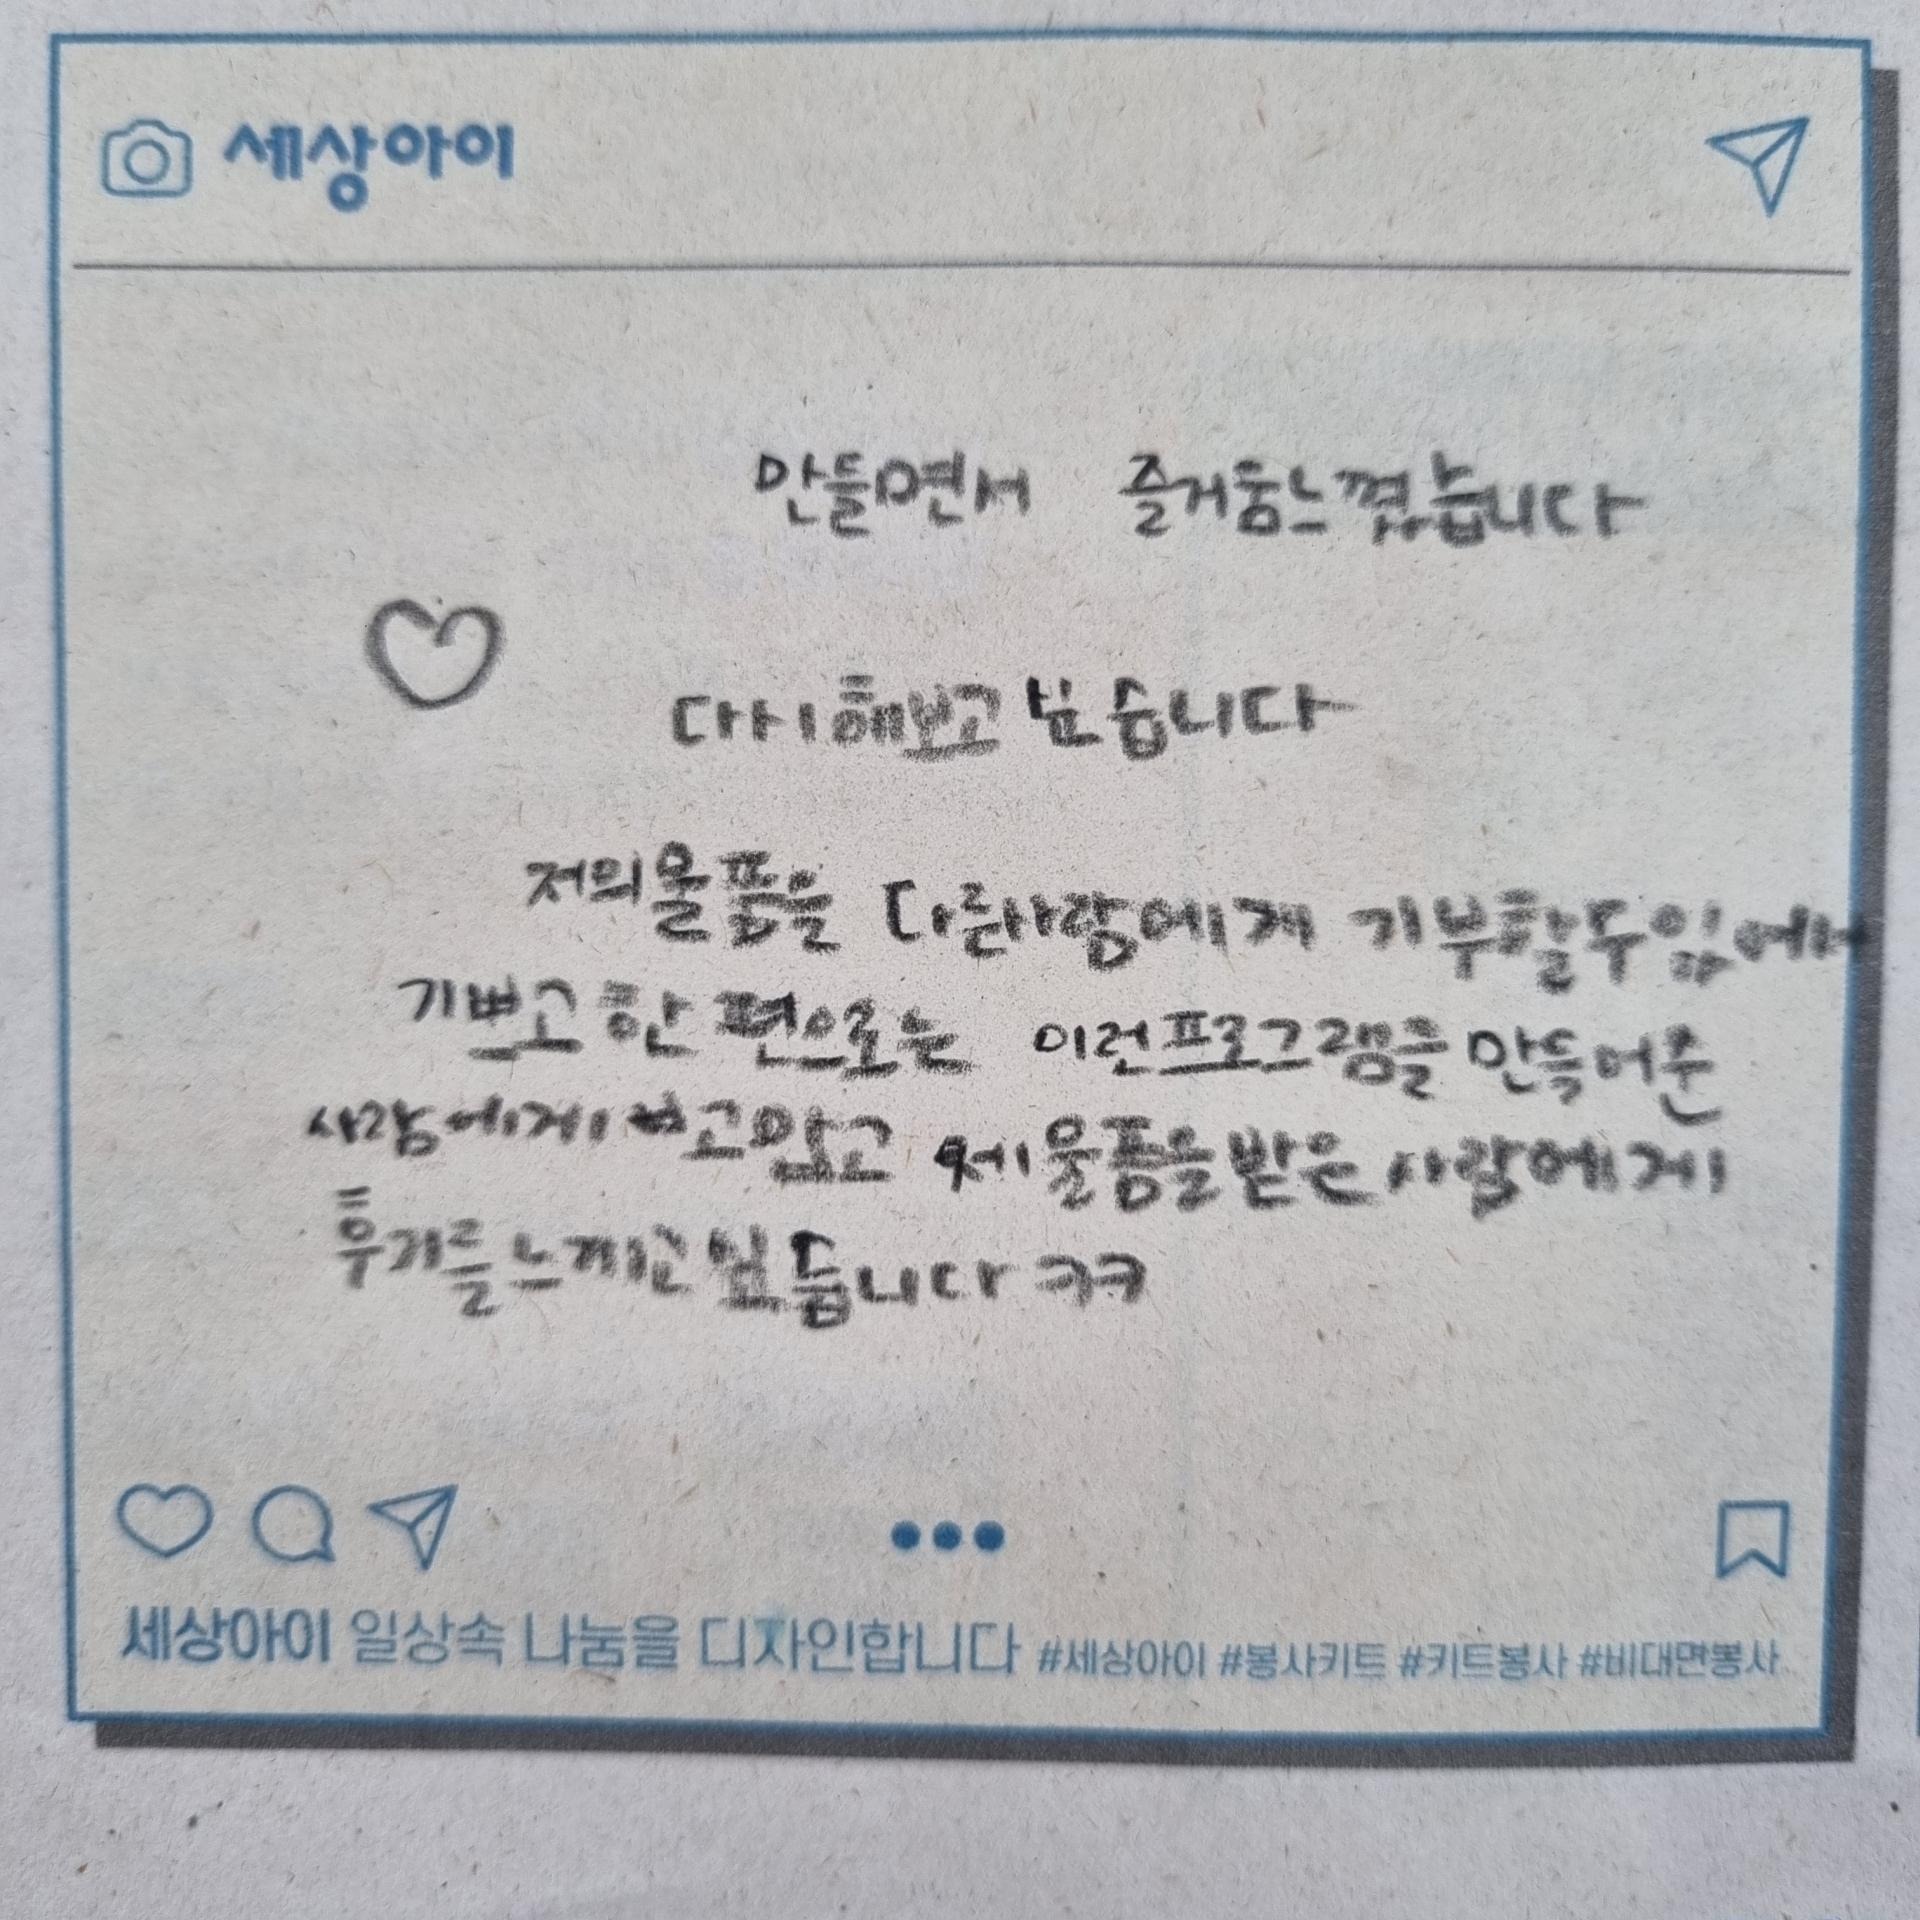 세상아이
만들면서 즐거움느꼈습니다
다시해보고 싶습니다
저의물품을 다른사람에게 기부할수있어서
기쁘고 한편으로는 이런프로그램을 만들어준
사람에게 고맙고 제물품을받은사람에게
후기를느끼고싶습니다 ㅋㅋ
세상아이 일상속 나눔을 디자인합니다 #세상아이 #봉사키트 #키트봉사 #비대면봉사